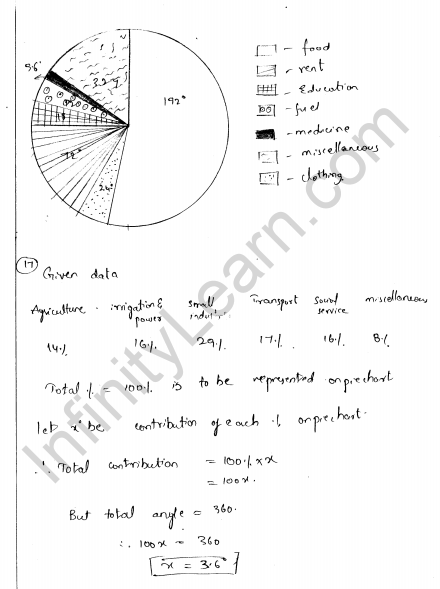 192°
5.6°
18
72°
24°
- food
- rent
- Education
- fuel
- medicine
- miscellaneous
- clothing
17
Given data
Agriculture irrigation & power small industries Transport Social service miscellaneous
14% 16% 29% 17% 16% 8%
Total % = 100% is to be represented on piechart
let x° be contribution of each % on piechart.
∴ Total contribution = 100% × x
= 100x.
But total angle = 360.
∴ 100x = 360
x = 3.6°
InfinityLearn.com